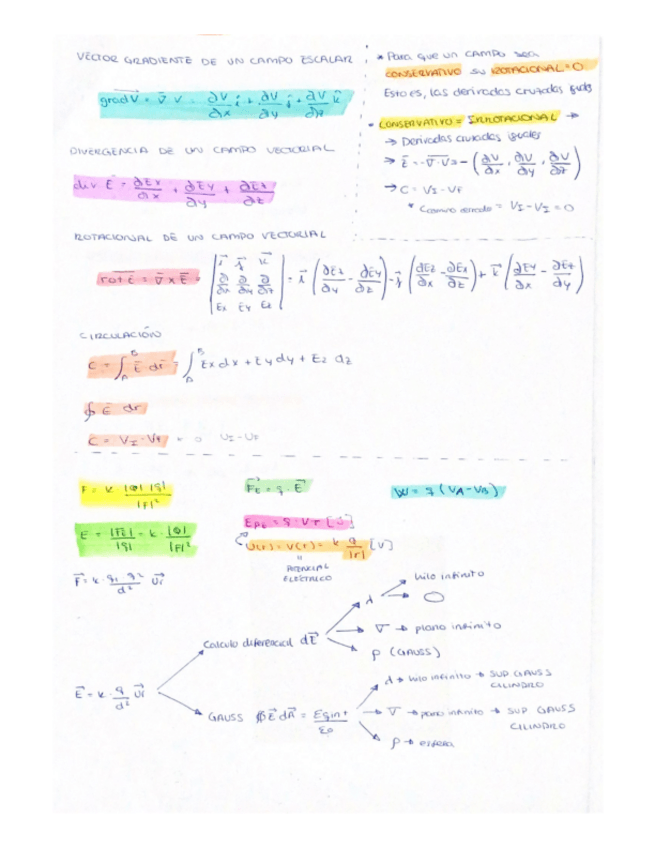 VECTOR GRADIENTE DE UN CAMPO ESCALAR
grad V = ∇ V = ∂V/∂x i + ∂V/∂y j + ∂V/∂z k
DIVERGENCIA DE UN CAMPO VECTORIAL
div E = ∂Ex/∂x + ∂Ey/∂y + ∂Ez/∂z
ROTACIONAL DE UN CAMPO VECTORIAL
* Para que un CAMPO sea
CONSERVATIVO su ROTACIONAL = 0
Esto es, las derivadas cruzadas
* CONSERVATIVO = IRROTACIONAL →
→ Derivadas cruzadas iguales
→ E = -∇·V = -(∂V/∂x, ∂V/∂y, ∂V/∂z)
→ C = VI - VF
* Camino cerrado = VI - VI = 0
rot E = ∇ x E = | i j k | ∂/∂x ∂/∂y ∂/∂z | Ex Ey Ez | = i (∂Ez/∂y - ∂Ey/∂z) - j (∂Ez/∂x - ∂Ex/∂z) + k (∂Ey/∂x - ∂Ex/∂y)
CIRCULACIÓN
C = ∫_A^B E dr = ∫_A^B Ex dx + Ey dy + Ez dz
∮ E dr
C = VI - VF = 0 VI - VF
F = k · |Q| |q| / |r|²
FE = q · E
W = q (VA - VB)
E = |FE| / |q| = k · |Q| / |r|²
Epe = q · Vr [J]
V(r) = k q / |r| [V]
POTENCIAL
ELÉCTRICO
F = k · q1 · q2 / d² ur
Calculo diferencial dE
λ → hilo infinito
→ ◯
∇ → plano infinito
ρ (GAUSS)
E = k · q / d² ur
GAUSS ∮ E dA = Eqint / ε0
λ → hilo infinito → SUP GAUSS
CILINDRO
∇ → plano infinito → SUP GAUSS
CILINDRO
ρ → esfera